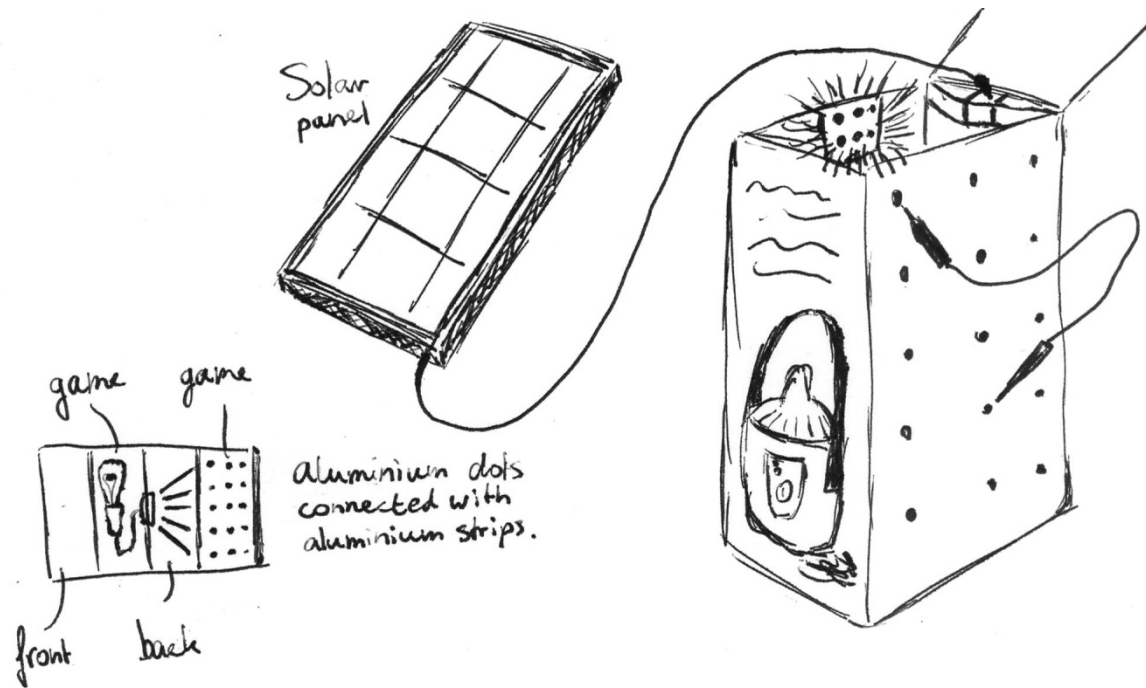 Solar
panel
game
game
aluminium dots
connected with
aluminium strips.
front
back